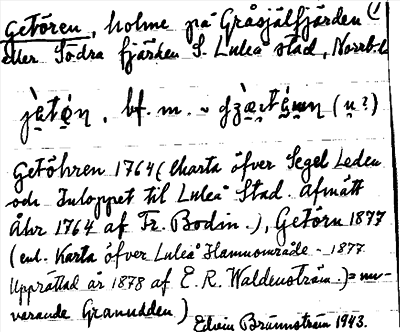 Getören, holme på Gråsjälfjärden (1
eller Södra fjärden S. Luleå stad, Norrb.l.
bf. m.
Getöhren 1764 (Charta öfver Segel Leden
och Inloppet til Luleå Stad. Afmått
Åhr 1764 af Fr. Bodin.), Getörn 1877
(enl. Karta öfver Luleå Hamnområde - 1877
Upprättad år 1878 af E. R. Waldenström.) = nu-
varande Granudden)
Edvin Brännström 1943.